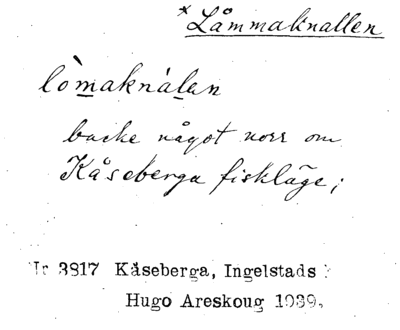 *Låmmaknallen
lòmaknàlen
backe något norr om
Kåseberga fiskläge;
3817 Kåseberga, Ingelstads
Hugo Areskoug 1939.